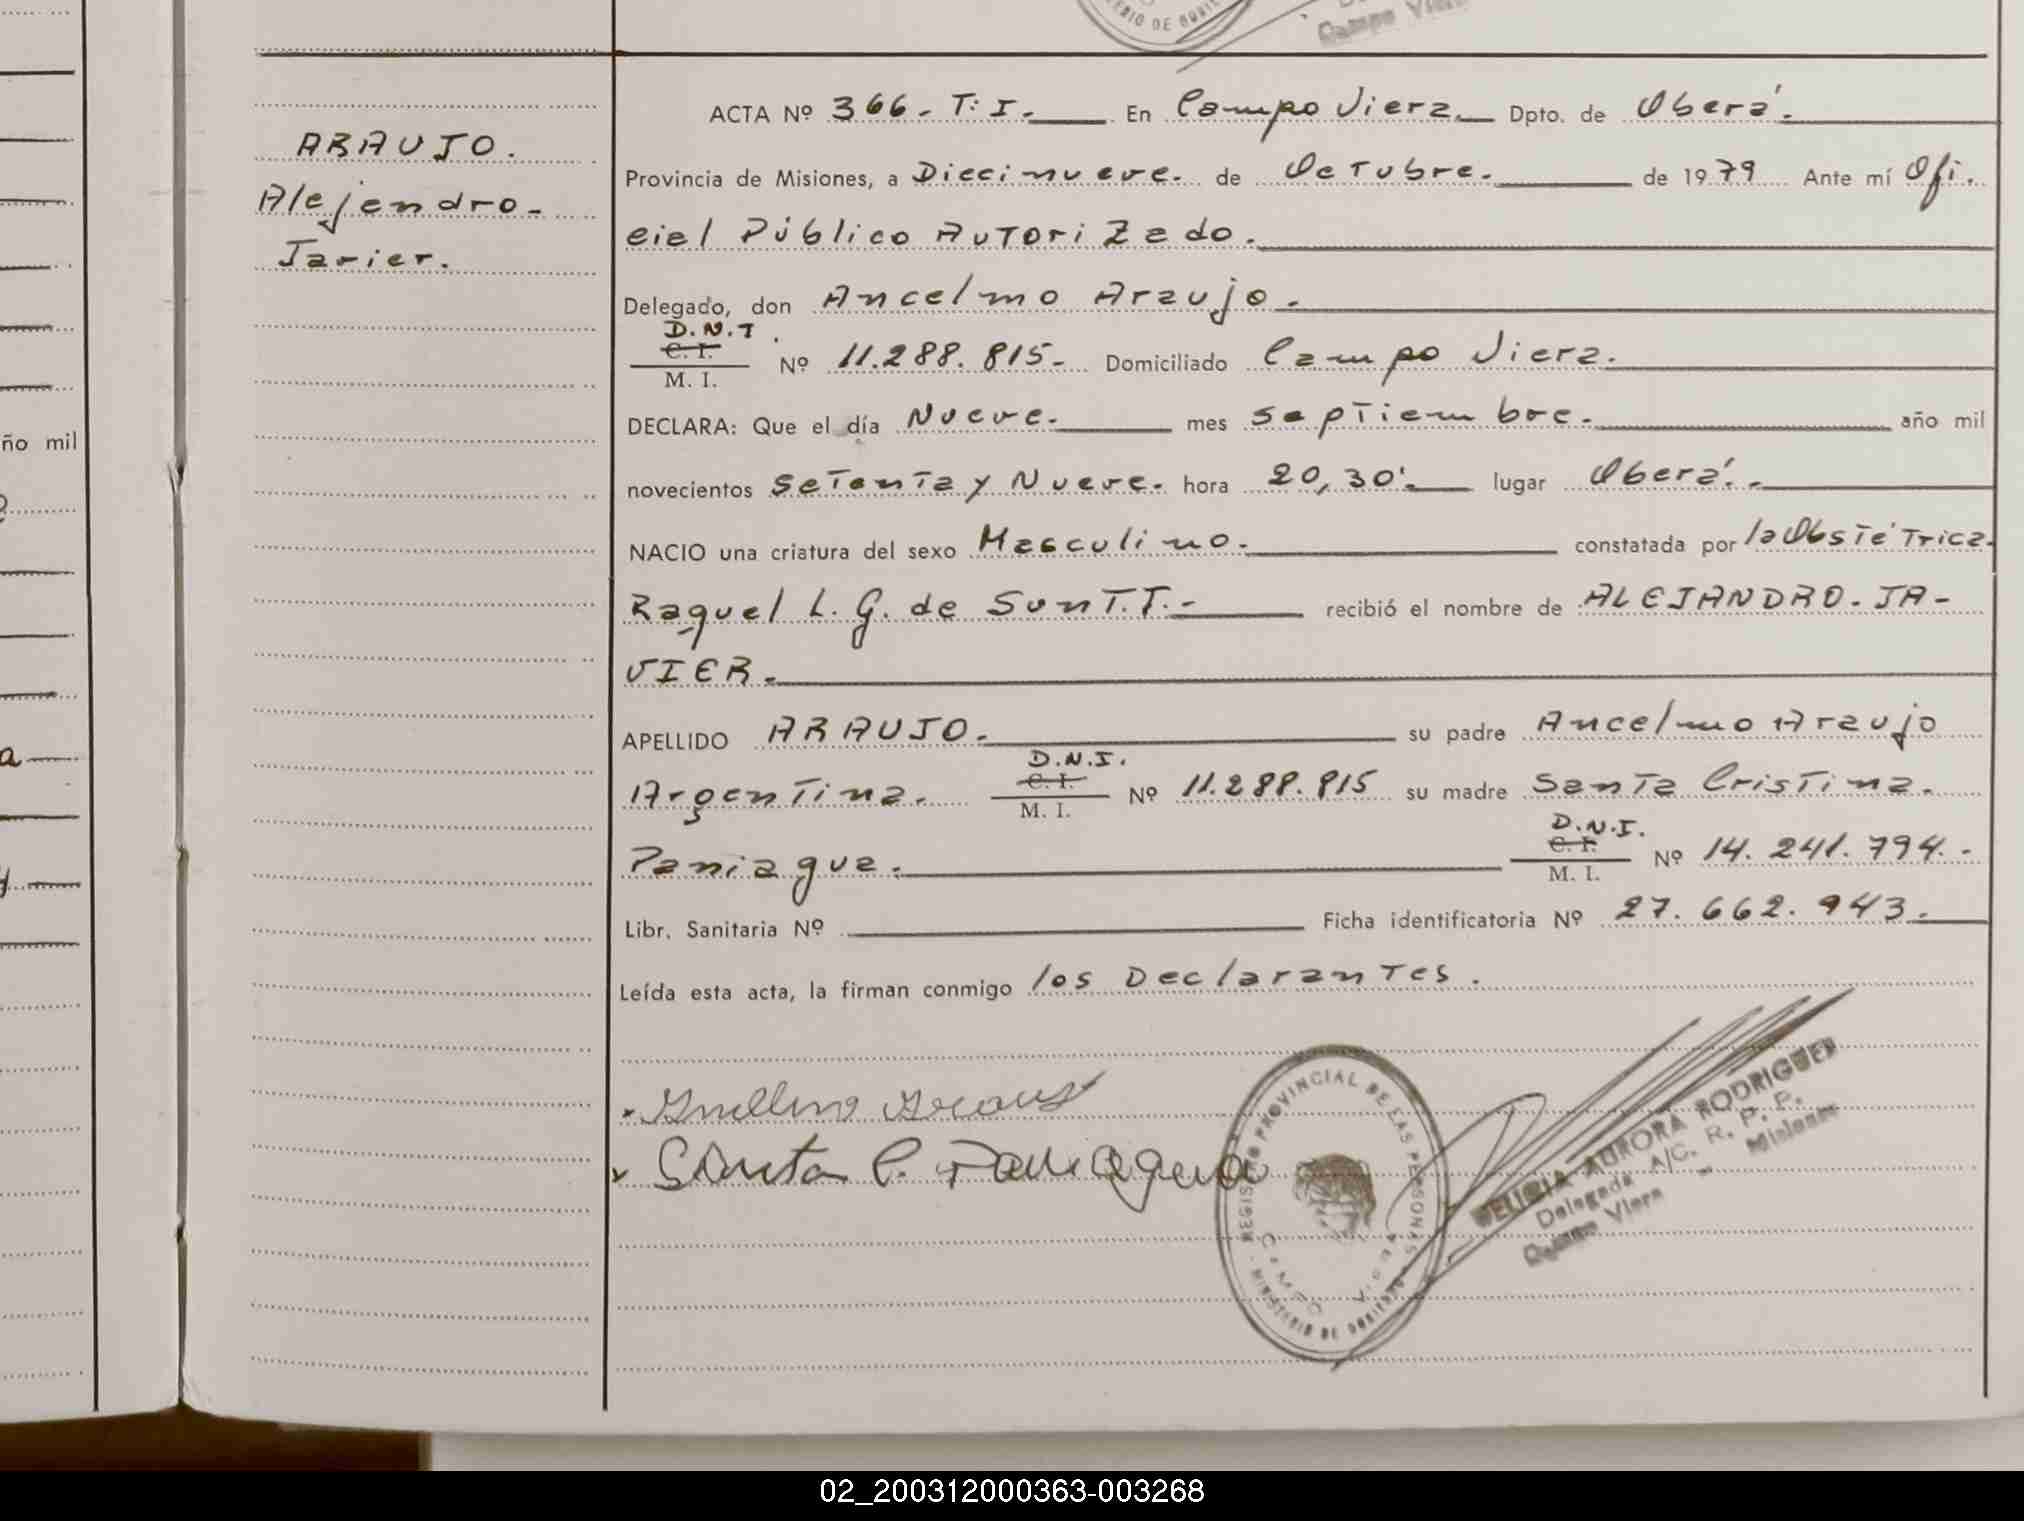 ERIO DE
Campo Viera
ACTA Nº 366. T: I. En Campo Viera. Dpto. de Oberá.
ARAUJO.
Alejandro.
Javier.
Provincia de Misiones, a Diecinueve. de Octubre. de 1979 Ante mí Ofi.
cial Público Autorizado.
Delegado, don Ancelmo Araujo.
D.N.I.
C. I.
M. I.
Nº 11.288.815. Domiciliado Campo Viera.
DECLARA: Que el día Nueve. mes Septiembre. año mil
novecientos Setenta y Nueve. hora 20,30'. lugar Oberá.
NACIO una criatura del sexo Masculino. constatada por la Obstétrica.
Raquel L. G. de Sontt. recibió el nombre de ALEJANDRO. JA-
VIER.
APELLIDO ARAUJO. su padre Ancelmo Araujo
D.N.I.
C. I.
M. I.
Argentina. Nº 11.288.815 su madre Santa Cristina.
D.N.I.
C. I.
M. I.
Paniagua. Nº 14.241.794.
Libr. Sanitaria Nº Ficha identificatoria Nº 27.662.943.
Leída esta acta, la firman conmigo los Declarantes.
Santa C. Paniagua
REGISTRO PROVINCIAL DE LAS PERSONAS
MINISTERIO DE GOBIERNO
CAMPO VIERA
AURORA RODRIGUEZ
Delegada A/C. R. P. P.
Campo Viera - Misiones
año mil
02_200312000363-003268